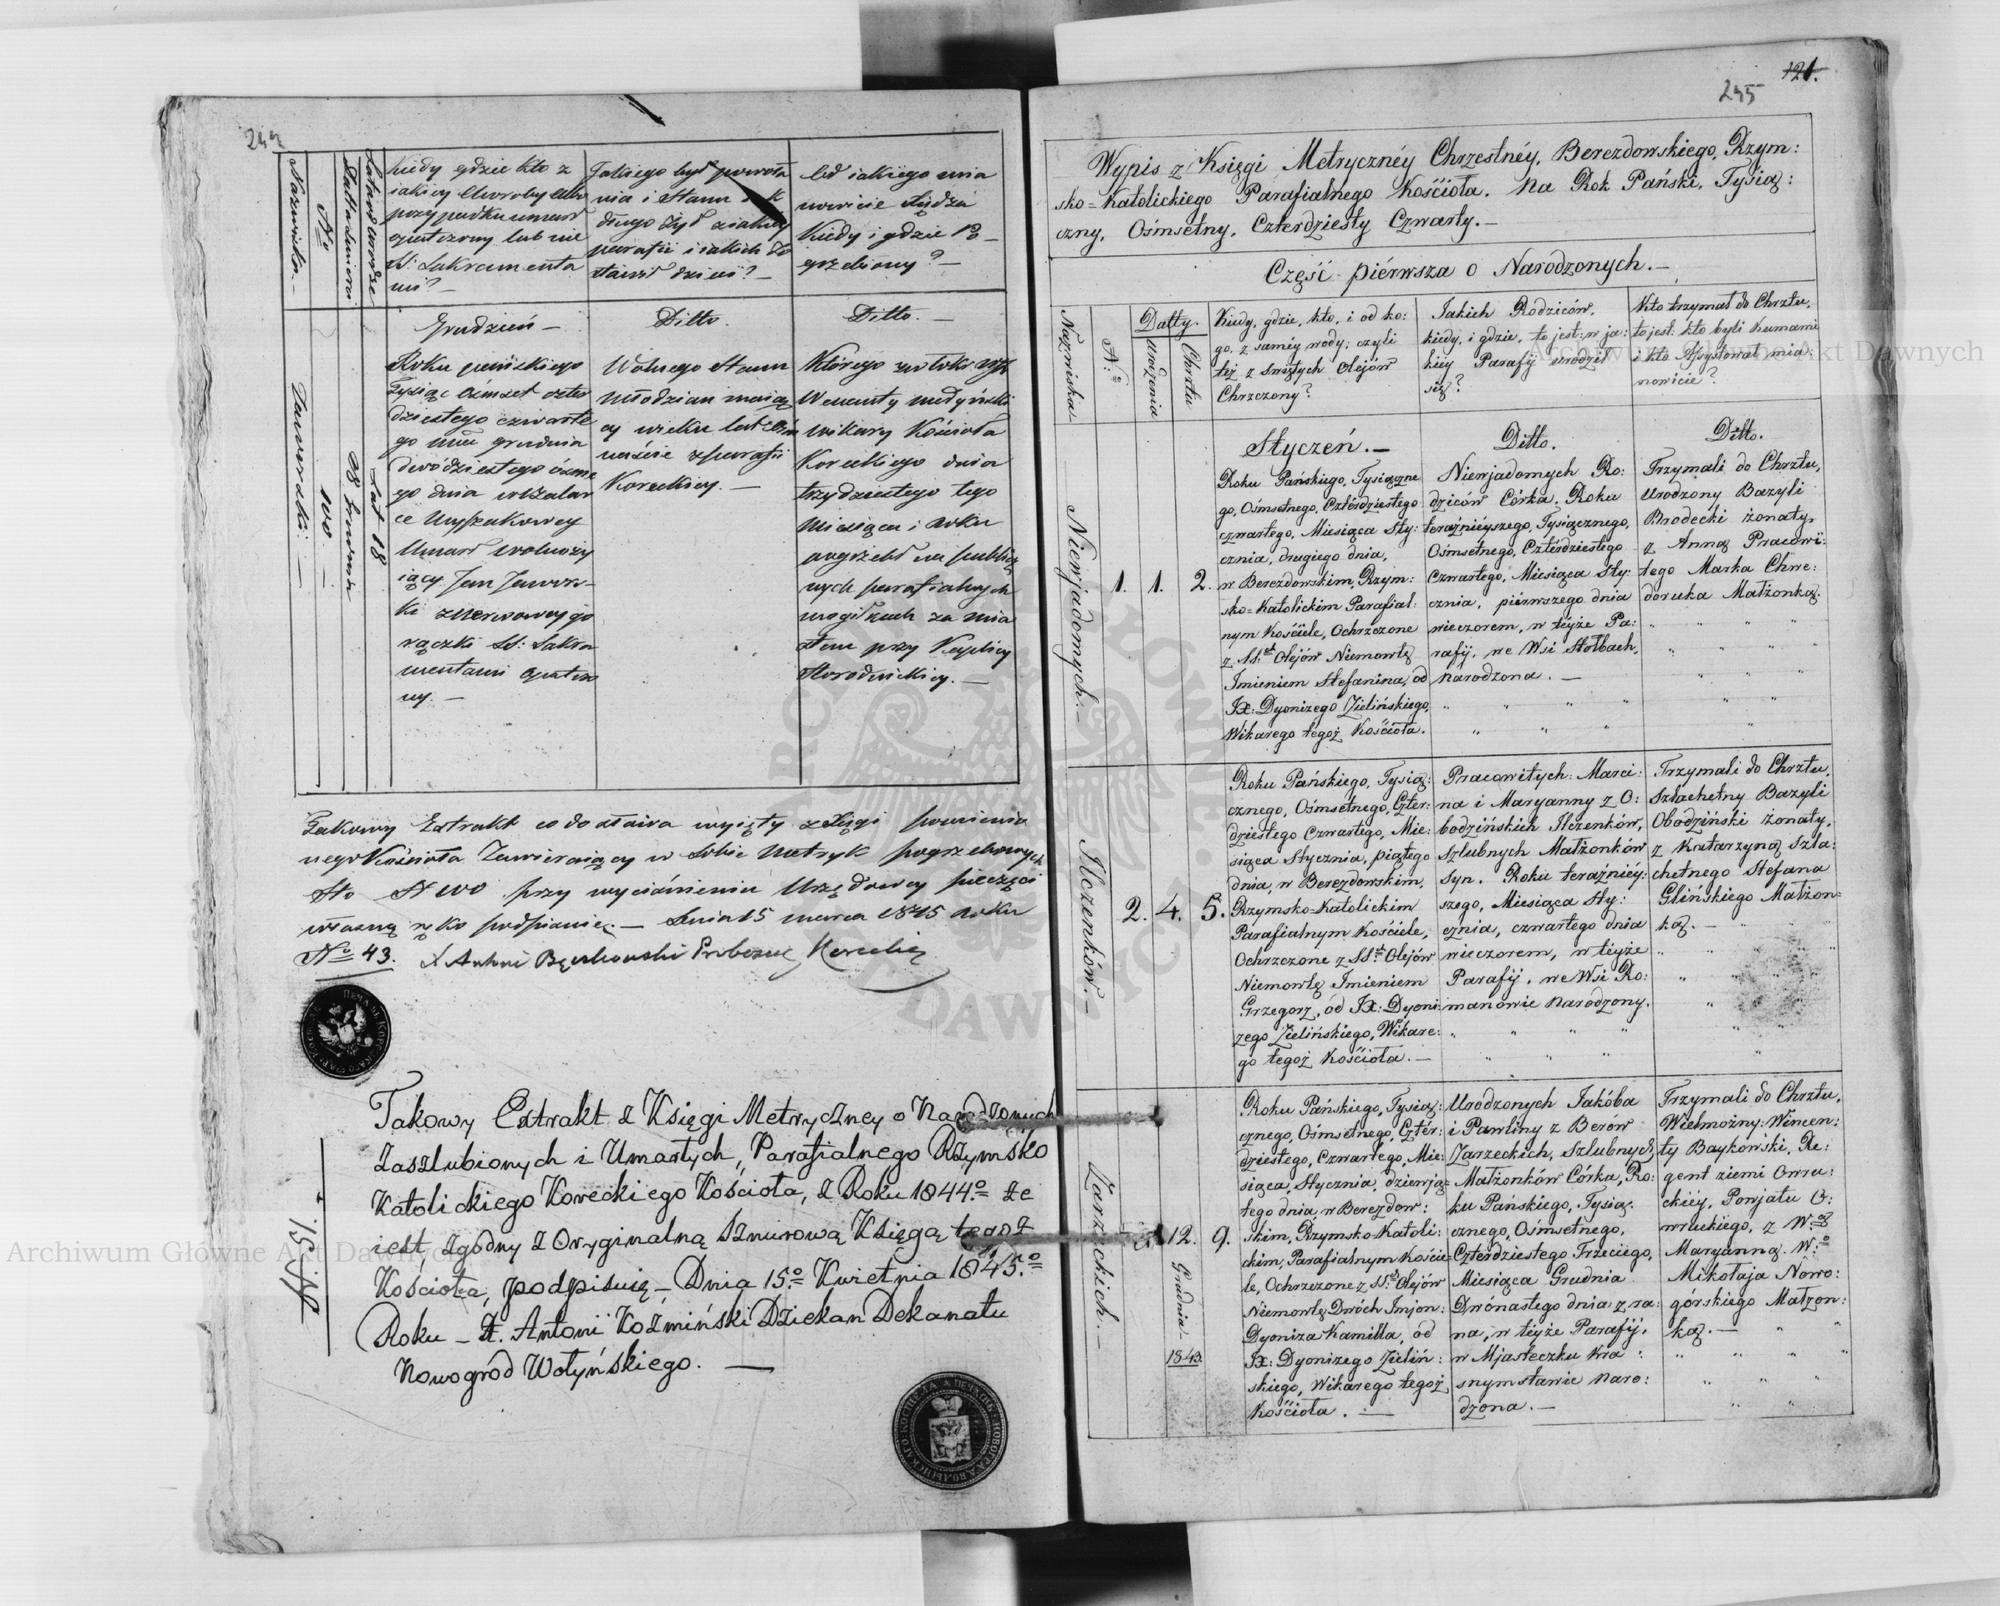 244
Nazwiska. —
No
Datta śmierci
kiedy gdzie kto z
iakiey Choroby albo
przypadku umarł
opatrzony lub nie
SS: Sakramenta
mi? —
Jakiego był powoła
nia i Stanu jak
długo żył z iakiey
parafii i iakich zo
stawił dzieci? —
Od iakiego mia
nowicie Xiędza
kiedy i gdzie Po —
grzebiony? —
Jaworski. —
100 —
28 Grudnia
Lat 18
Grudzień —
Roku pańskiego
Tysiąc ośmset czter
dziestego czwarte
go mca grudnia
dwódziestego ósme
go dnia
Umarł
iący Jan Jawor-
ski z nerwowey go
rączki SS: Sakra
mentami opatrzo
ny. —
Ditto.
Wolnego Stanu
młodzian maiąc
y wieku lat ośm
naście z parafii
Koreckiey. —
Ditto. —
Którego zwłoki wyż
wikary Kościoła
Koreckiego dnia
trzydziestego tego
Miesiąca i Roku
pogrzebł na publicz
nych parafialnych
mogiłkach za mia
stem przy Kaplicy
Horodnickiey. —
Takowy Extrakt co do słowa wyięty z Xięgi pomienio
nego Kościoła Zawieraiący w Sobie Metryk pogrzebowych
Sto N 100 przy wyciśnieniu Urzędowey pieczęci
własną ręką podpisuię. — Dnia 15 marca 1845 Roku
No 43. X Antoni Proboszcz Korecki
Takowy Extrakt z Księgi Metryczney o Narodzonych
Zaszlubionych i Umarłych, Parafialnego Rzymsko
Katolickiego Koreckiego Kościoła, z Roku 1844.o że
iest zgodny z Oryginalną Sznurową Księgą tegoż
Kościoła, podpisuię — Dnia 15.o Kwietnia 1845.o
Roku — X. Antoni Koźmiński Dziekan Dekanatu
Nowogród Wołyńskiego. —
245
121.
Wypis z Księgi Metrycznéy Chrzestnéy, Berezdowskiego, Rzym:
sko=Katolickiego Parafialnego Kościoła. Na Rok Pański, Tysią:
czny, Ośmsetny, Czterdziesty Czwarty. —
Część piérwsza o Narodzonych. —
Nazwiska
N.o
Datty.
Urodzenia
Chrztu
Kiedy, gdzie, kto, i od ko:
go, z samiey wody; czyli
też z Swiętych Olejów
Chrzczony?
Jakich Rodziców,
kiedy, i gdzie, to jest: w ja:
kiéy Parafij urodził
się?
Kto trzymał do Chrztu,
to jest: kto byli Kumami
i kto Assystował mia:
nowicie?
Niewjadomych. —
1. 1. 2.
Styczeń. —
Roku Pańskiego, Tysiączne
go, Ośmsetnego, Czterdziestego
czwartego, Miesiąca Sty:
cznia, drugiego dnia,
w Berezdowskim, Rzym:
sko=Katolickim Parafial:
nym Kościele, Ochrzczone
z SS.ch Olejów Niemowlę
Imieniem Stefanina, od
Ix: Dyonizego Zielińskiego,
Wikarego tegoż Kościoła.
Ditto.
Niewjadomych Ro:
dziców Córka, Roku
teraźniéyszego, Tysiącznego,
Ośmsetnego, Czterdziestego
Czwartego, Miesiąca Sty:
cznia, piérwszego dnia
wieczorem, w téyże Pa:
rafij, we Wsi Stołbach,
Narodzona. —
Ditto.
Trzymali do Chrztu,
Urodzony Bazyli
Brodecki żonaty,
z Anną Pracowi:
tego Marka Chwe:
doruka Małżonką.
Ilczenków. —
2. 4. 5.
Roku Pańskiego, Tysią:
cznego, Ośmsetnego, Czter:
dziestego Czwartego, Mie:
siąca Stycznia, piątego
dnia, w Berezdowskim,
Rzymsko=Katolickim
Parafialnym Kościele,
Ochrzczone z SS.ch Olejów
Niemowlę Imieniem
Grzegorz, od Ix: Dyoni
zego Zielińskiego, Wikare:
go tegoż Kościoła. —
Pracowitych: Marci:
na i Maryanny z O:
bodzińskich Ilczenków,
Szlubnych Małżonków
Syn. Roku teraźniéy:
szego, Miesiąca Sty:
cznia, czwartego dnia
wieczorem, w téyże
Parafij, we Wsi Ro:
manówie Narodzony.
Trzymali do Chrztu,
Szlachetny Bazyli
Obodziński żonaty,
z Katarzyną Szla:
chetnego Stefana
Glińskiego Małżon=
ką. —
Zarzeckich. —
12. 9.
Grudnia
1843.
Roku Pańskiego, Tysią:
cznego, Ośmsetnego, Czter:
dziestego, Czwartego, Mie:
siąca, Stycznia, dziewią=
tego dnia, w Berezdow:
skim, Rzymsko=Katoli:
ckim, Parafialnym Koście
le, Ochrzczone z SS.ch Olejów
Niemowlę Dwóch Imjon:
Dyoniza Kamilla, od
Ix: Dyonizego Zieliń:
skiego, Wikarego tegoż
Kościoła. —
Urodzonych Jakóba
i Pawliny z Berów
Zarzeckich, Szlubnych
Małżonków Córka, Ro:
ku Pańskiego, Tysią:
cznego, Ośmsetnego,
Czterdziestego, Trzeciego,
Miesiąca Grudnia
Dwónastego dnia z ra:
na, w téyże Parafij,
w Mjasteczku Kra:
snymstawie Naro:
dzona. —
Trzymali do Chrztu,
Wielmożny: Wincen:
ty Baykowski, Re:
gent ziemi Owru:
ckiéy, Powjatu O:
wruckiego, z W:ną
Maryanną W:o
Mikołaja Nowo:
górskiego Małżon:
ką. —
Archiwum Główne Akt Dawnych